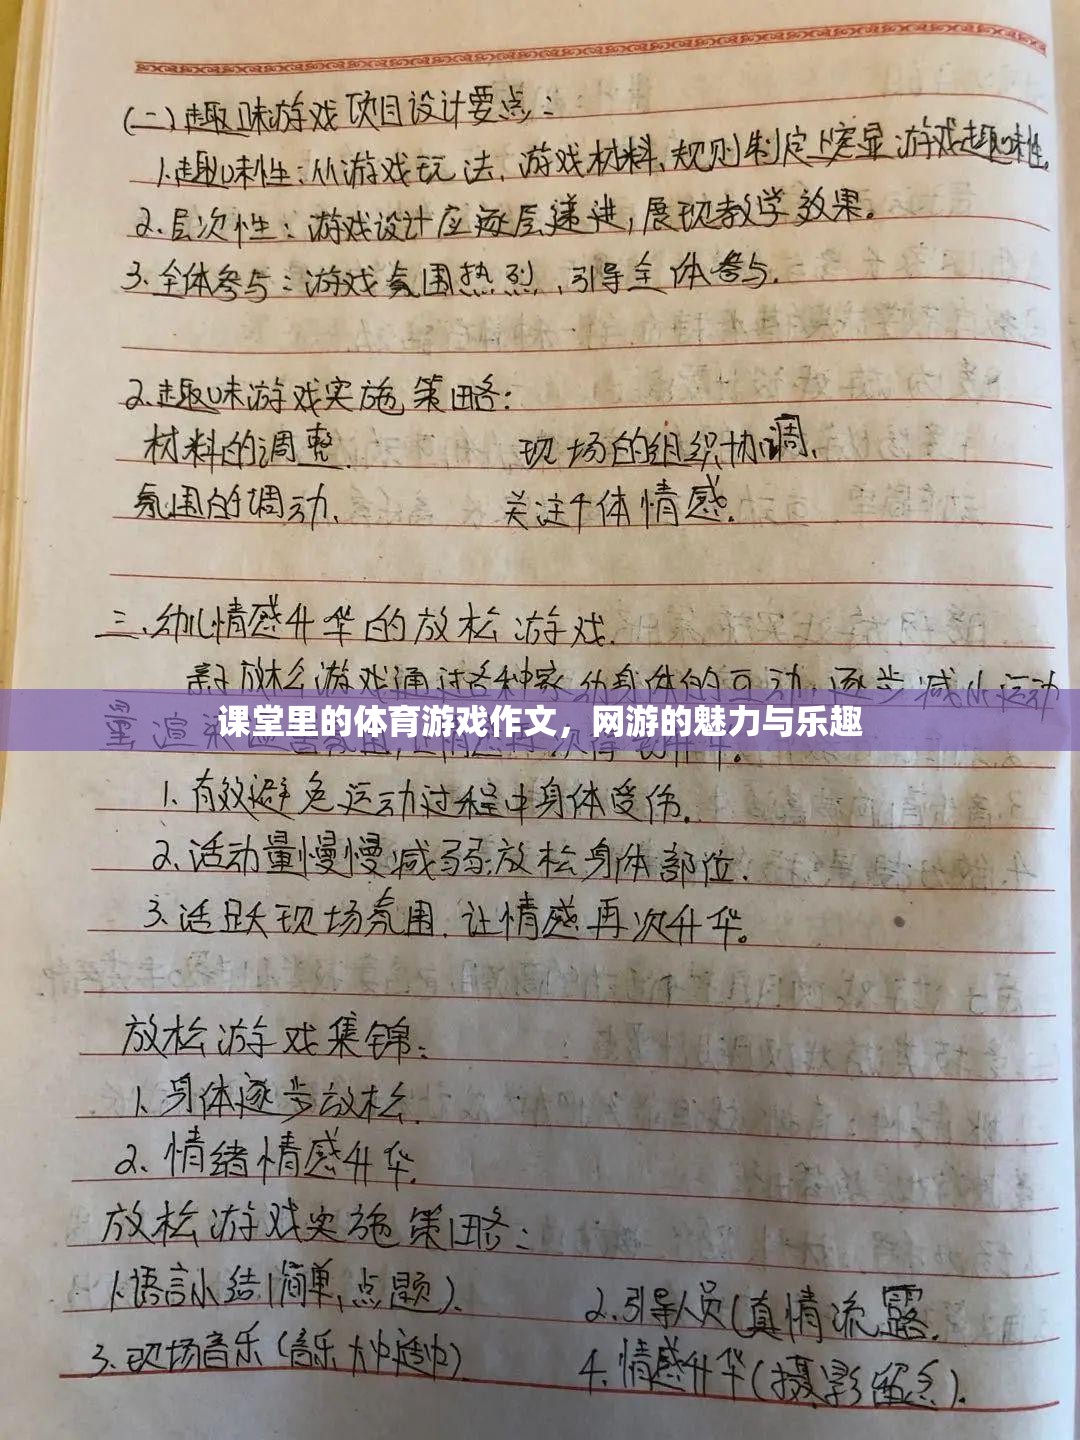 (二)趣味游戏项目设计要点:
1.趣味性:从游戏玩法、游戏材料、规则制定上突显游戏趣味性。
2.层次性:游戏设计应逐层递进,展现教学效果。
3.全体参与:游戏氛围热烈、引导全体参与.
2.趣味游戏实施策略:
材料的调整. 现场的组织协调、
氛围的调动、 关注个体情感.
三、幼儿情感升华的放松游戏.
亲子放松游戏通过各种家幼身体的互动,逐步减小运动
量渲染
课堂里的体育游戏作文，网游的魅力与乐趣
1.有效避免运动过程中身体受伤.
2.活动量慢慢减弱放松身体部位.
3.活跃现场氛围.让情感再次升华。
放松游戏集锦:
1.身体逐步放松.
2.情绪情感升华.
放松游戏实施策略:
1.语言小结(简单,点题). 2.引导人员(真情流露.
3.现场音乐(音乐 4.情感升华(摄影留念).